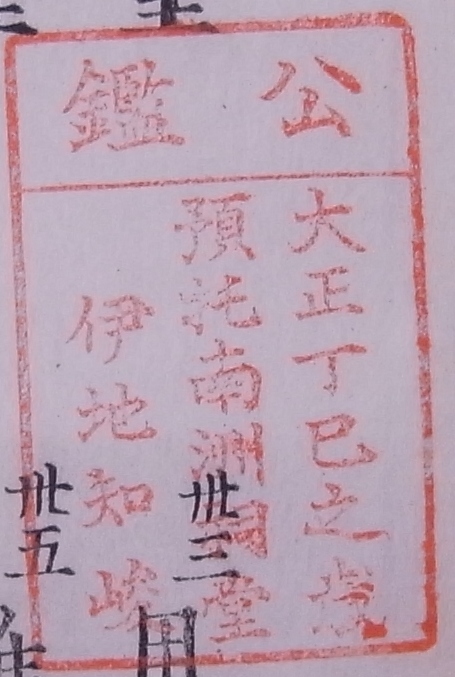 公鑑
大正丁巳之歳
預托南洲祠堂
伊地知峻
卅三
卅五年